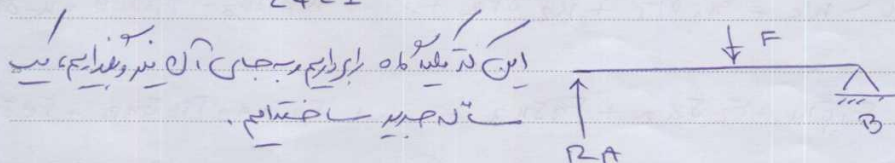 این که تکیه گاه را برداریم و به جای آن نیرو بگذاریم، یک
مسأله جدید ساخته‌ایم.
F
B
RA